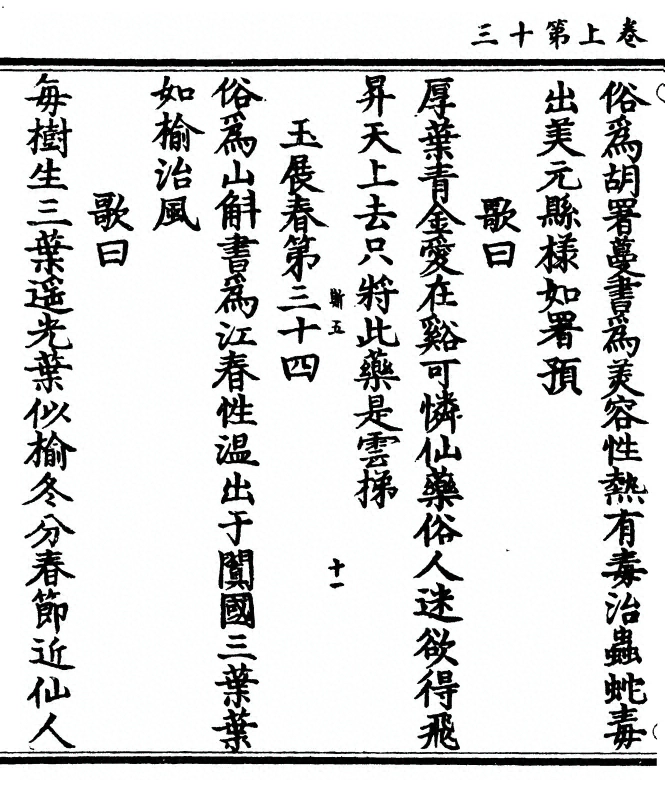 三十第上卷
俗爲胡署蔓書爲美容性熱有毒治蟲蛇毒
出美元縣樣如署預
歌曰
厚葉青金愛在谿可憐仙藥俗人迷欲得飛
昇天上去只將此藥是雲梯
玉展春第三十四
斯五
十一
俗爲山斛書爲江春性温出于闐國三葉葉
如榆治風
歌曰
每樹生三葉遥光葉似榆冬分春節近仙人